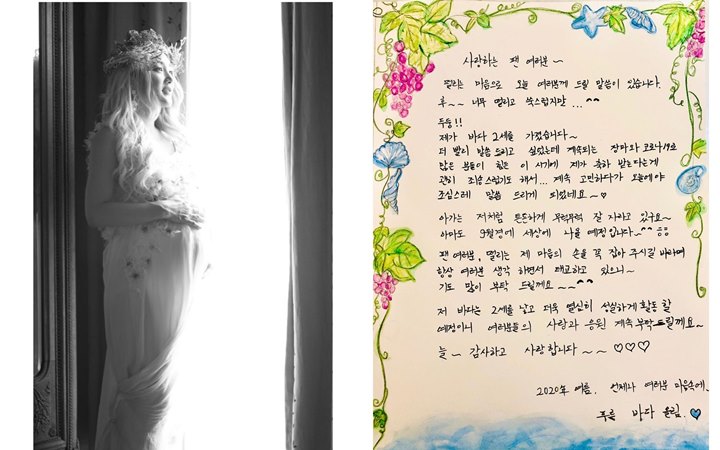 사랑하는 팬 여러분~
떨리는 마음으로 오늘 여러분께 드릴 말씀이 있습니다.
후~~ 너무 떨리고 쑥스럽지만...^^
두둥!!
제가 바다 2세를 가졌습니다~
더 빨리 말씀드리고 싶었는데 계속되는 장마와 코로나19로
많은 분들이 힘든 이 시기에 제가 축하 받는다는게
괜히 죄송스럽기도 해서... 계속 고민하다가 오늘에야
조심스레 말씀 드리게 되었네요~♡
아가는 저처럼 튼튼하게 무럭무럭 잘 자라고 있구요~
아마도 9월경에 세상에 나올 예정입니다~^^
팬 여러분, 떨리는 제 마음의 손을 꼭 잡아 주시길 바라며
항상 여러분 생각 하면서 태교하고 있으니~
기도 많이 부탁 드릴께요~~^^
저 바다는 2세를 낳고 더욱 열심히 성실하게 활동할
예정이니 여러분들의 사랑과 응원 계속 부탁드릴께요~
늘~ 감사하고 사랑합니다~~♡♡♡
2020年 여름. 언제나 여러분 마음속에..
푸를 바다 올림.